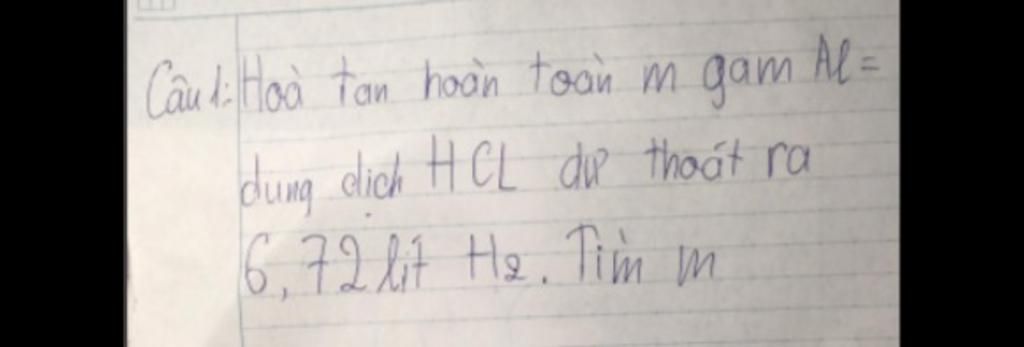 Câu1: Hoà tan hoàn toàn m gam Al=
dung dịch HCL dư thoát ra
6,72 lít H2. Tìm m